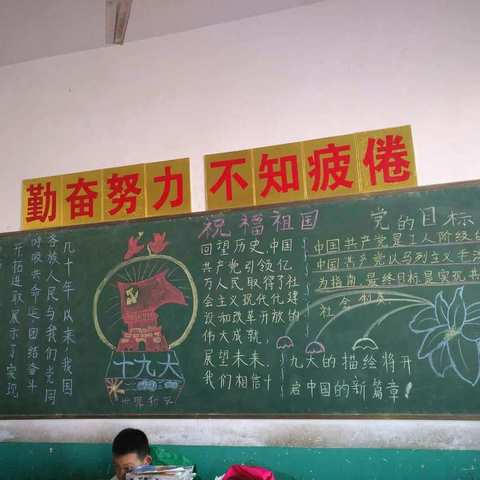 勤奋努力 不知疲倦
祝福祖国
党的目标
几十年以来，我国
各族人民与我们党同
呼吸共命运团结奋斗
开拓进取展示了实现
十九大
世界和平
回望历史，中国
共产党引领亿
万人民取得了社
会主义现代化建
设和改革开放的
伟大成就，
展望未来，
我们相信十
九大的描绘将开
启中国的新篇章！
中国共产党是工人阶级
中国共产党以马列主义
为指南，最终目标是实现共
社会制度